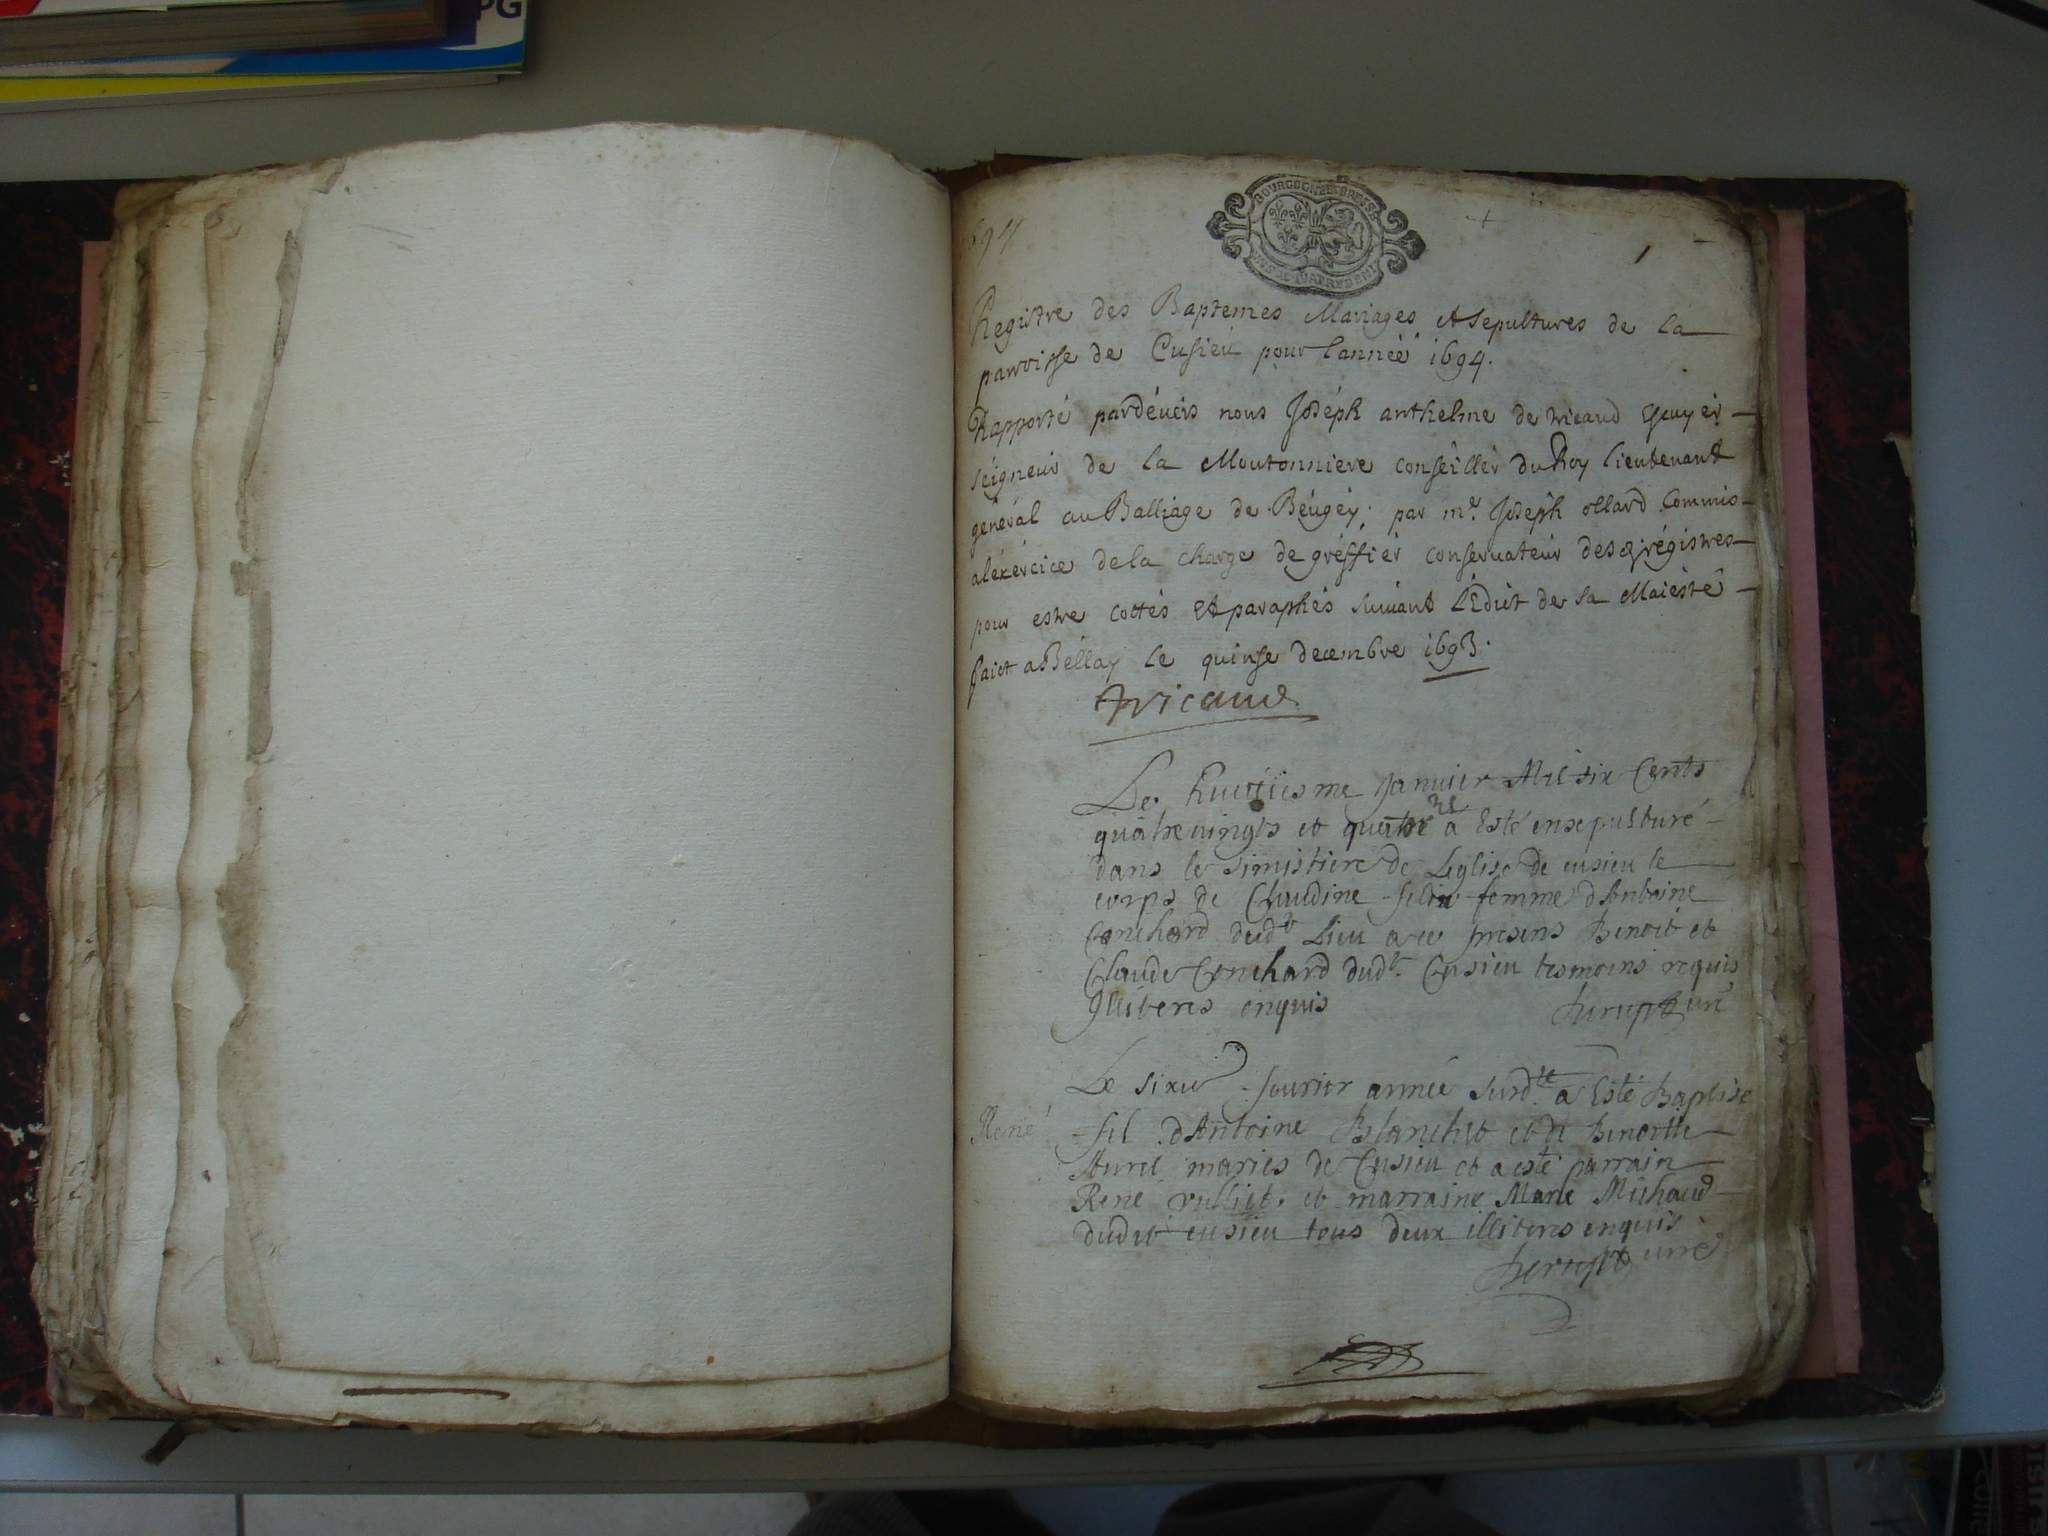 PG
BOURGOGNE ET BRESSE
Registre des Baptemes Mariages et sepultures de la
parroisse de Cusieu pour lannéé 1694.
Rapporté pardeuers nous Joseph anthelme de tricaud Escuyer
seigneur de la Moutonniere conseiller du Roy lieutenant
general au Balliage de Beugey. par me. Joseph ollard Commis
alexercice dela charge de greffier conservateur des registres
pour estre cottés et paraphés suiuant L'Edict de sa Maiesté
faict a Bellay le quinse decembre 1693.
Tricaud
Le huictiesme Januier Mil six Cents
quatre uingts et quatre a Esté ensepulturé
dans le simistiere de Leglise de cusieu le
corps de Claudine femme d'Antoine
Conchard dudt Lieu auec presens Benoit et
Claude Conchard dudt. Cusieu tesmoins requis
Illiteres enquis curé
Le feurier année surdte a Esté Baptise
René
fil d'Antoine Blanchet et de Benoitte
maries de Cusieu et a esté parrain
René vulliet. et marraine Marie Michaud
dudit cusieu tous deux illiteres enquis
curé